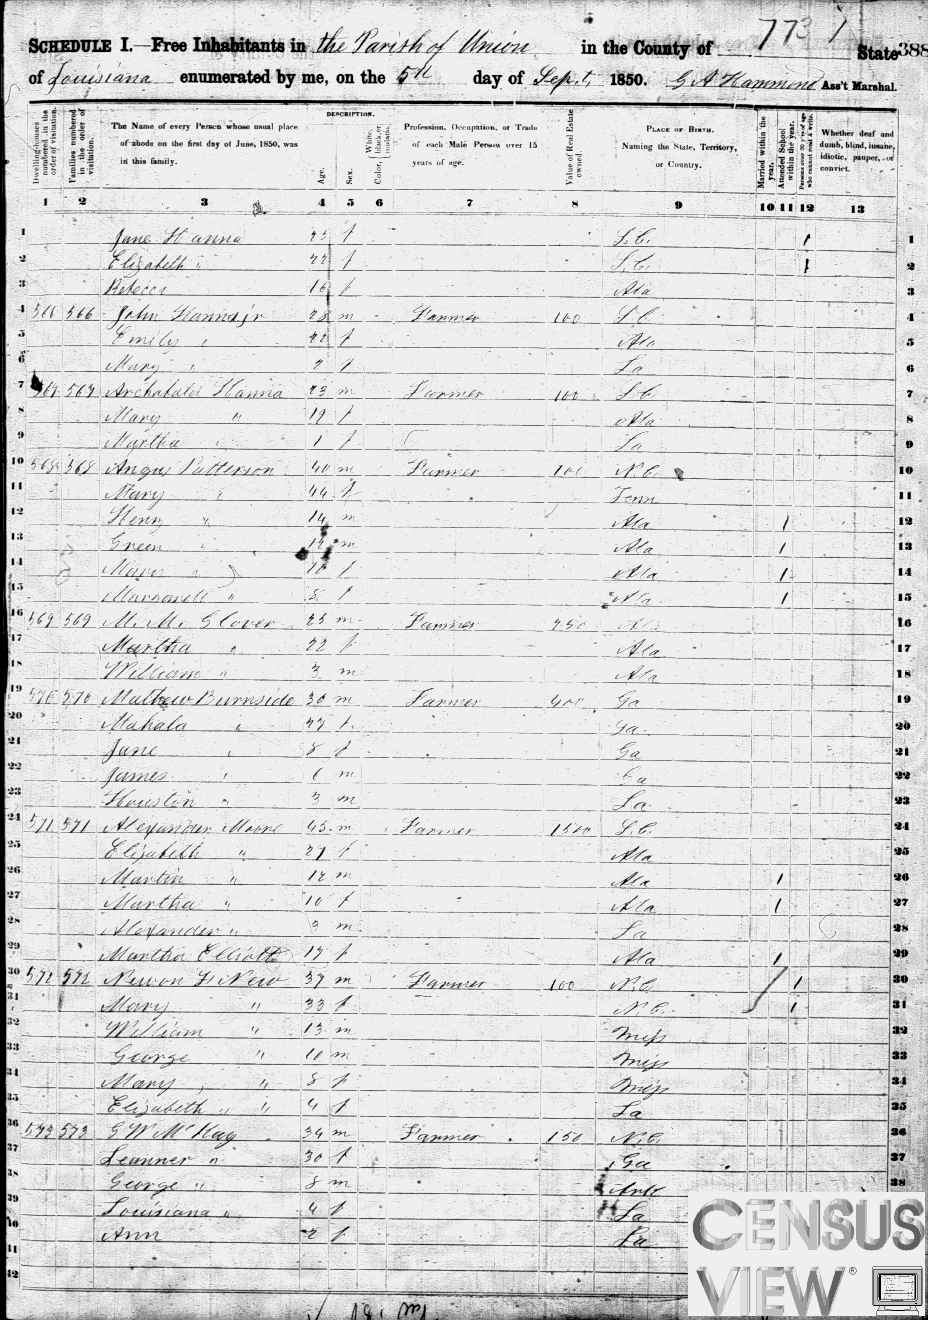 773 1
SCHEDULE I.—Free Inhabitants in the Parish of Union in the County of State 388
of Louisiana enumerated by me, on the 5th day of Sept, 1850. G A Hammond Ass't Marshal.
Dwelling-houses numbered in the order of visitation.
Families numbered in the order of visitation.
The Name of every Person whose usual place of abode on the first day of June, 1850, was in this family.
DESCRIPTION.
Age.
Sex.
Color, White, black, or mulatto.
Profession, Occupation, or Trade of each Male Person over 15 years of age.
Value of Real Estate owned.
PLACE OF BIRTH. Naming the State, Territory, or Country.
Married within the year.
Attended School within the year.
Persons over 20 y'rs of age who cannot read & write.
Whether deaf and dumb, blind, insane, idiotic, pauper, or convict.
1 2 3 4 5 6 7 8 9 10 11 12 13
1 Jane Hanna f S.C. 1 1
2 Elizabeth " 22 f S.C. 1 2
3 Rebecca 16 f Ala 3
4 566 566 John Hanna jr 28 m Farmer 100 S.C. 4
5 Emily " 22 f Ala 5
6 Mary " 2 f La 6
7 567 567 Archabald Hanna 23 m Farmer 100 S.C. 7
8 Mary " 19 f Ala 8
9 Martha " 1 f La 9
10 568 568 Angus Patterson 40 m Farmer 100 N.C. 10
11 Mary " 44 f Tenn 11
12 Henry " 14 m Ala 1 12
13 Green " 12 m Ala 1 13
14 Mary " 10 f Ala 1 14
15 " 8 f Ala 1 15
16 569 569 M. M. Glover 25 m Farmer 250 Ala 16
17 Martha " 22 f Ala 17
18 William " 3 m Ala 18
19 570 570 Mathew Burnside 30 m Farmer 400 Ga 19
20 Mahala " 27 f Ga 20
21 Jane " 8 f Ga 21
22 James " 6 m Ga 22
23 Houston " 3 m La 23
24 571 571 Alexander Moore 45 m Farmer 1500 S.C. 24
25 Elizabeth " 27 f Ala 25
26 Martin " 12 m Ala 1 26
27 Martha " 10 f Ala 1 27
28 Alexander " 3 m La 28
29 Martha Elliott 17 f Ala 1 29
30 572 572 New 37 m Farmer 100 N.C. 1 30
31 Mary " 33 f N.C. 1 31
32 William " 13 m Miss 32
33 George " 10 m Miss 33
34 Mary " 8 f Miss 34
35 Elizabeth " " 4 f La 35
36 573 573 G W McKay 34 m Farmer 150 N.C. 36
37 Leanner " 30 f Ga 37
38 George " 8 m Ark 38
39 Louisiana " 4 f La
40 Ann 2 f La
41
42
CENSUS
VIEW®